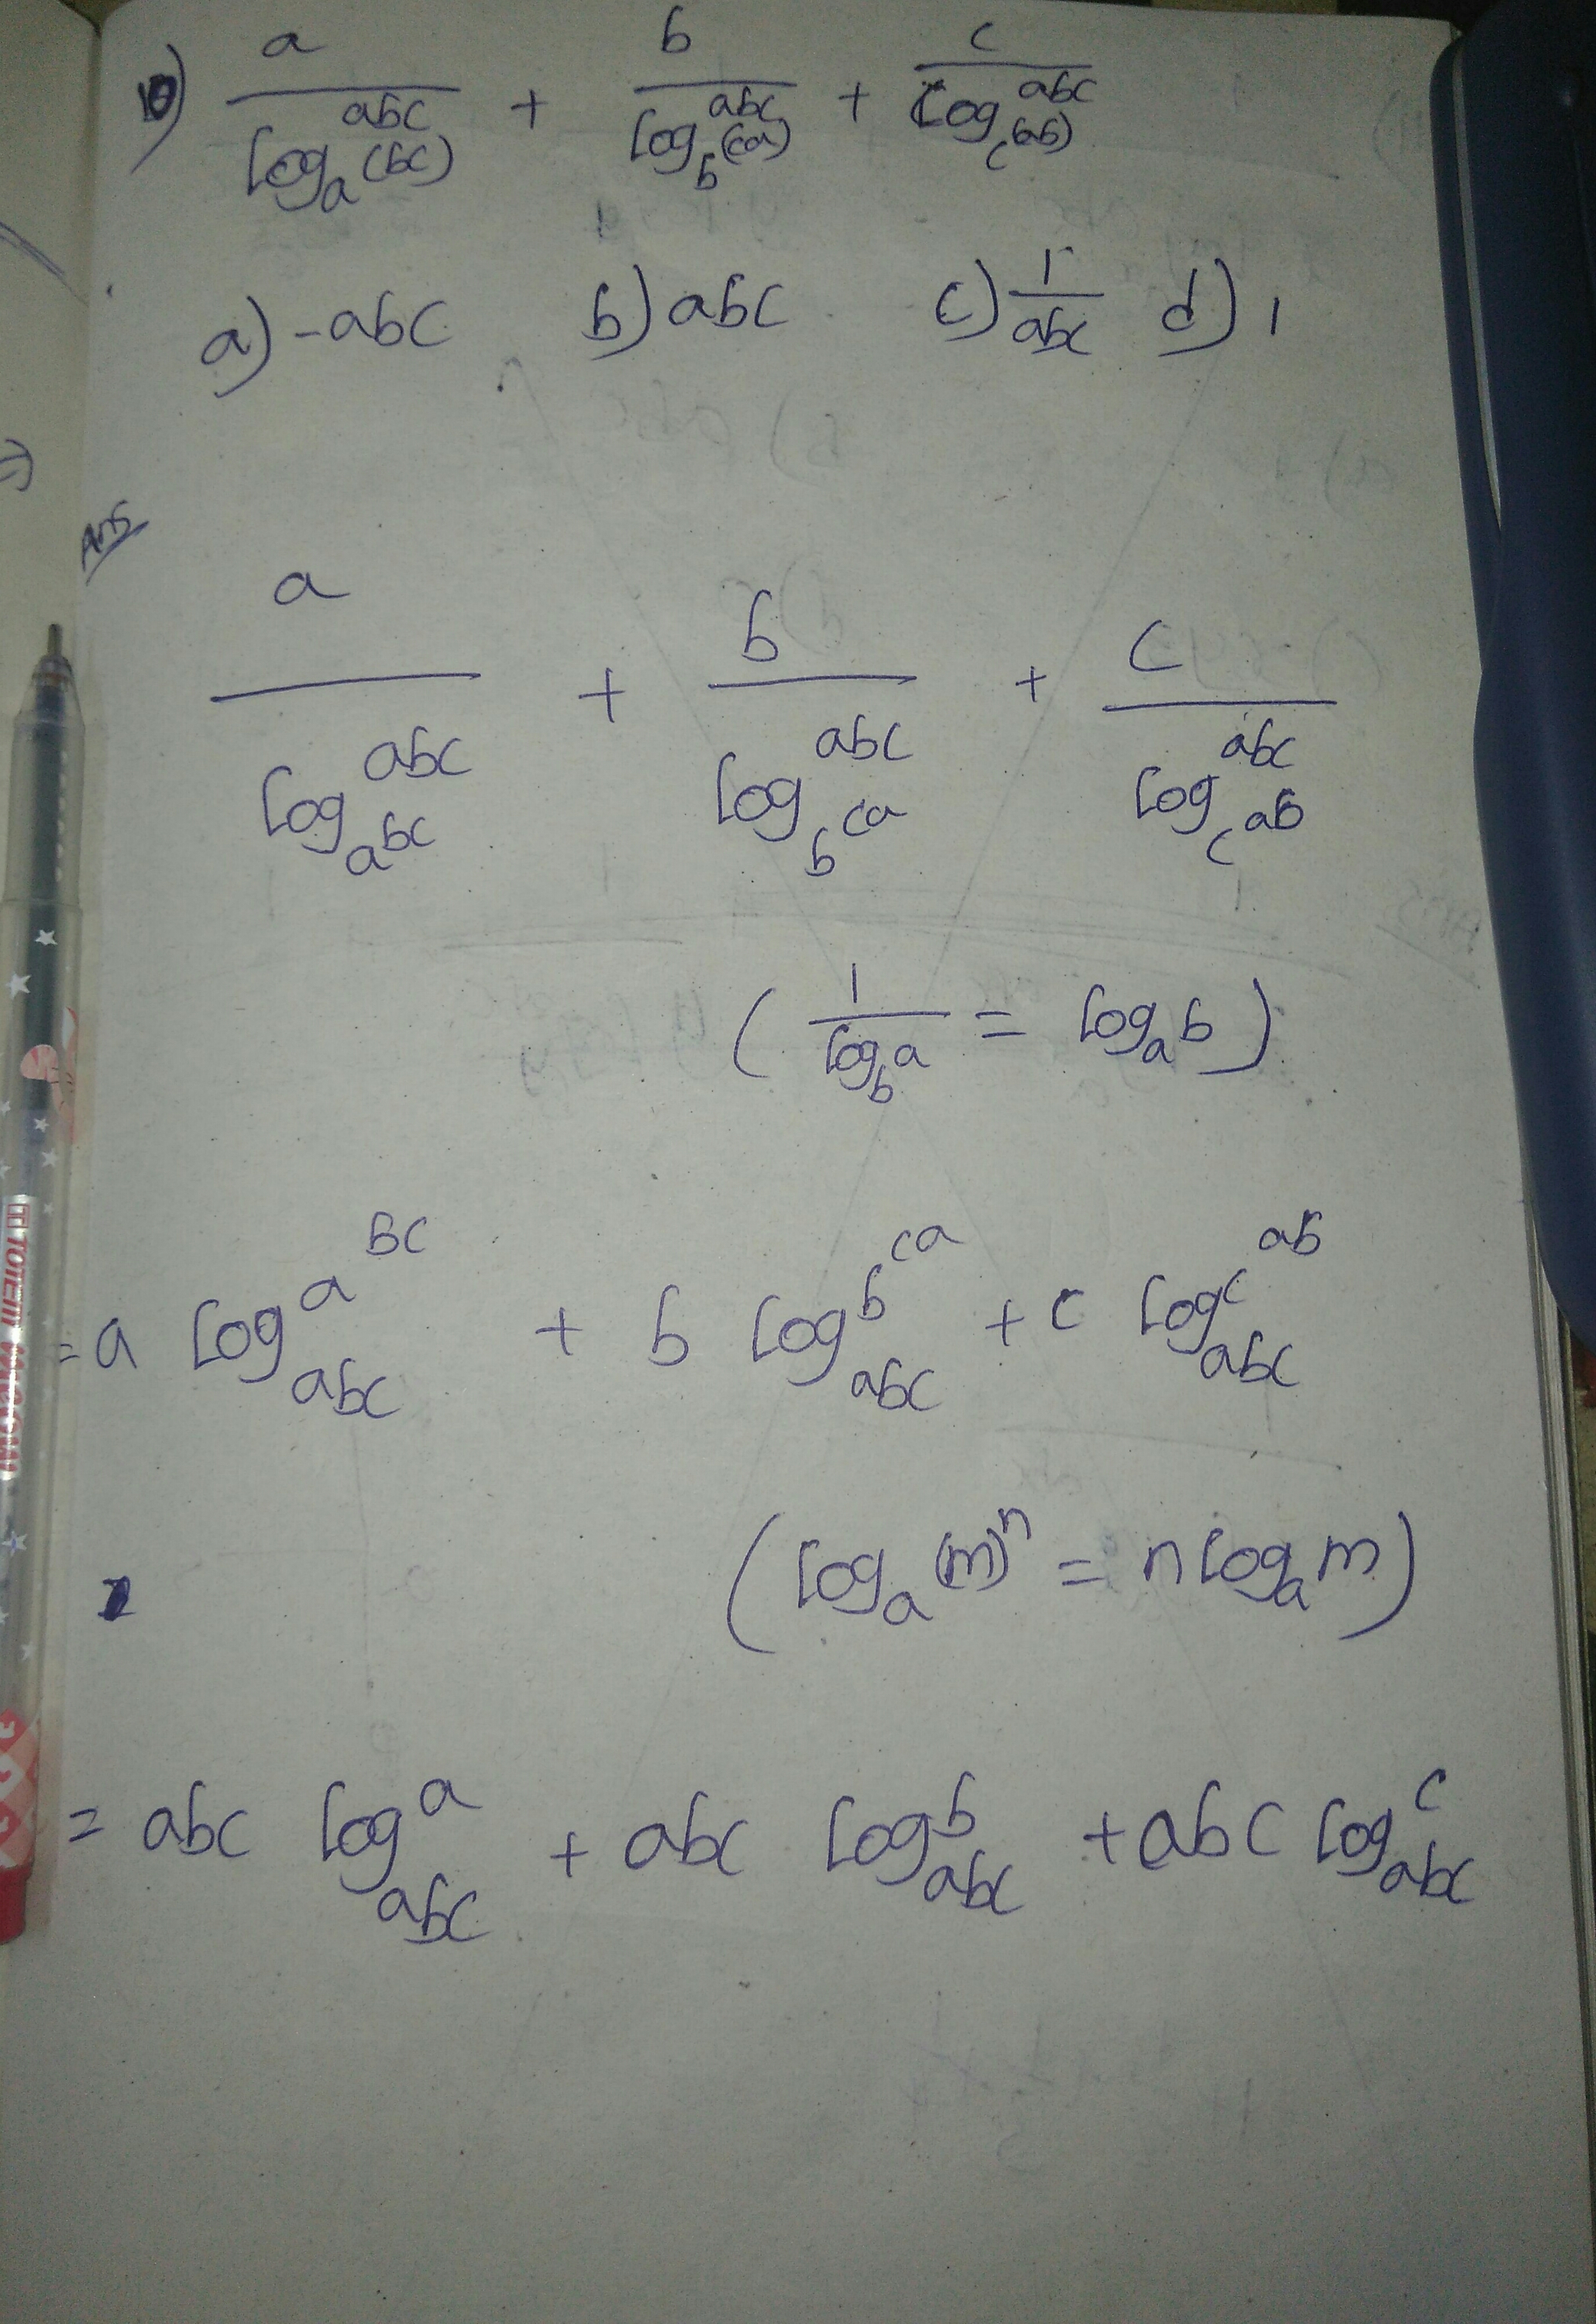 10) a/log_{a^(bc)} abc + b/log_{b^(ca)} abc + c/log_{c^(ab)} abc
a) -abc b) abc c) 1/abc d) 1
Ans
a/log_{a^bc} abc + b/log_{b^ca} abc + c/log_{c^ab} abc
(1/log_b a = log_a b)
= a log_{abc} a^bc + b log_{abc} b^ca + c log_{abc} c^ab
(log_a (m)^n = n log_a m)
= abc log_{abc} a + abc log_{abc} b + abc log_{abc} c
TOTEM